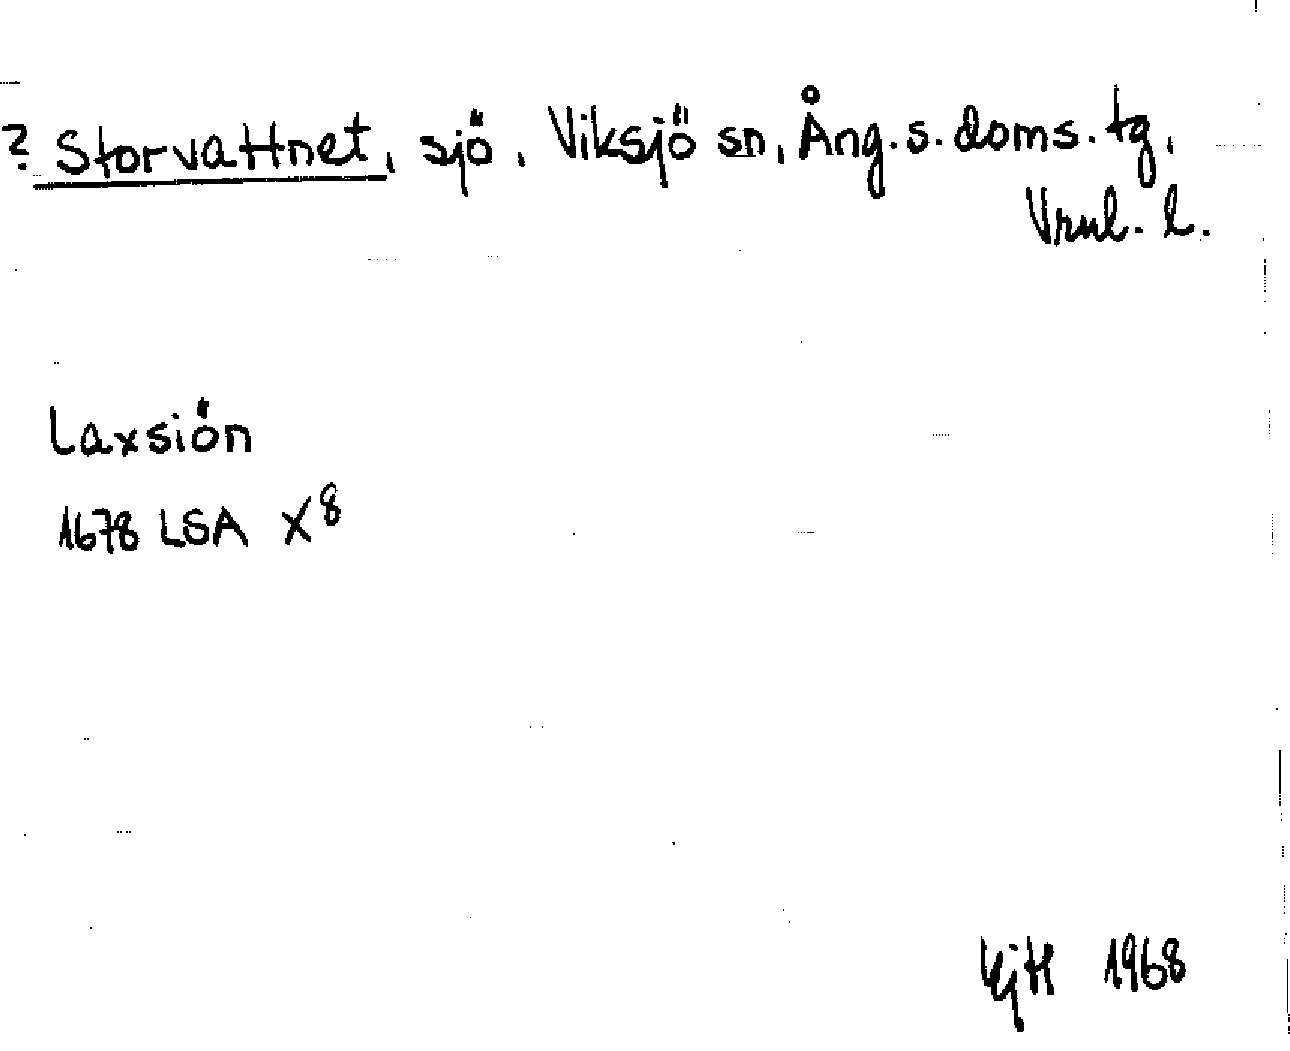 ? Storvattnet, sjö, Viksjö sn, Ång. s. doms. tg,
Vrnl. l.
Laxsiön
1678 LSA X⁸
1968